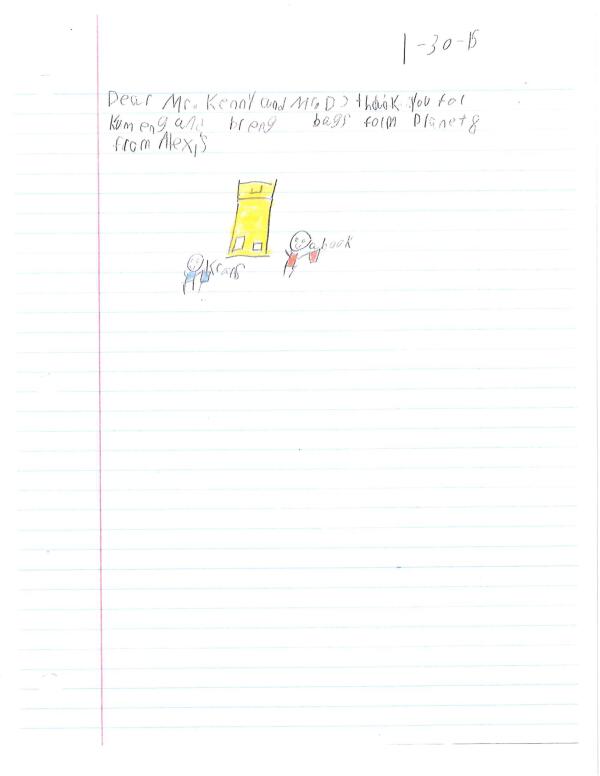 1-30-15
Dear Mr. Kenny and Mr. D) think you for
Kumeng and breng bags form Planet8
from Alexis
Krans a book